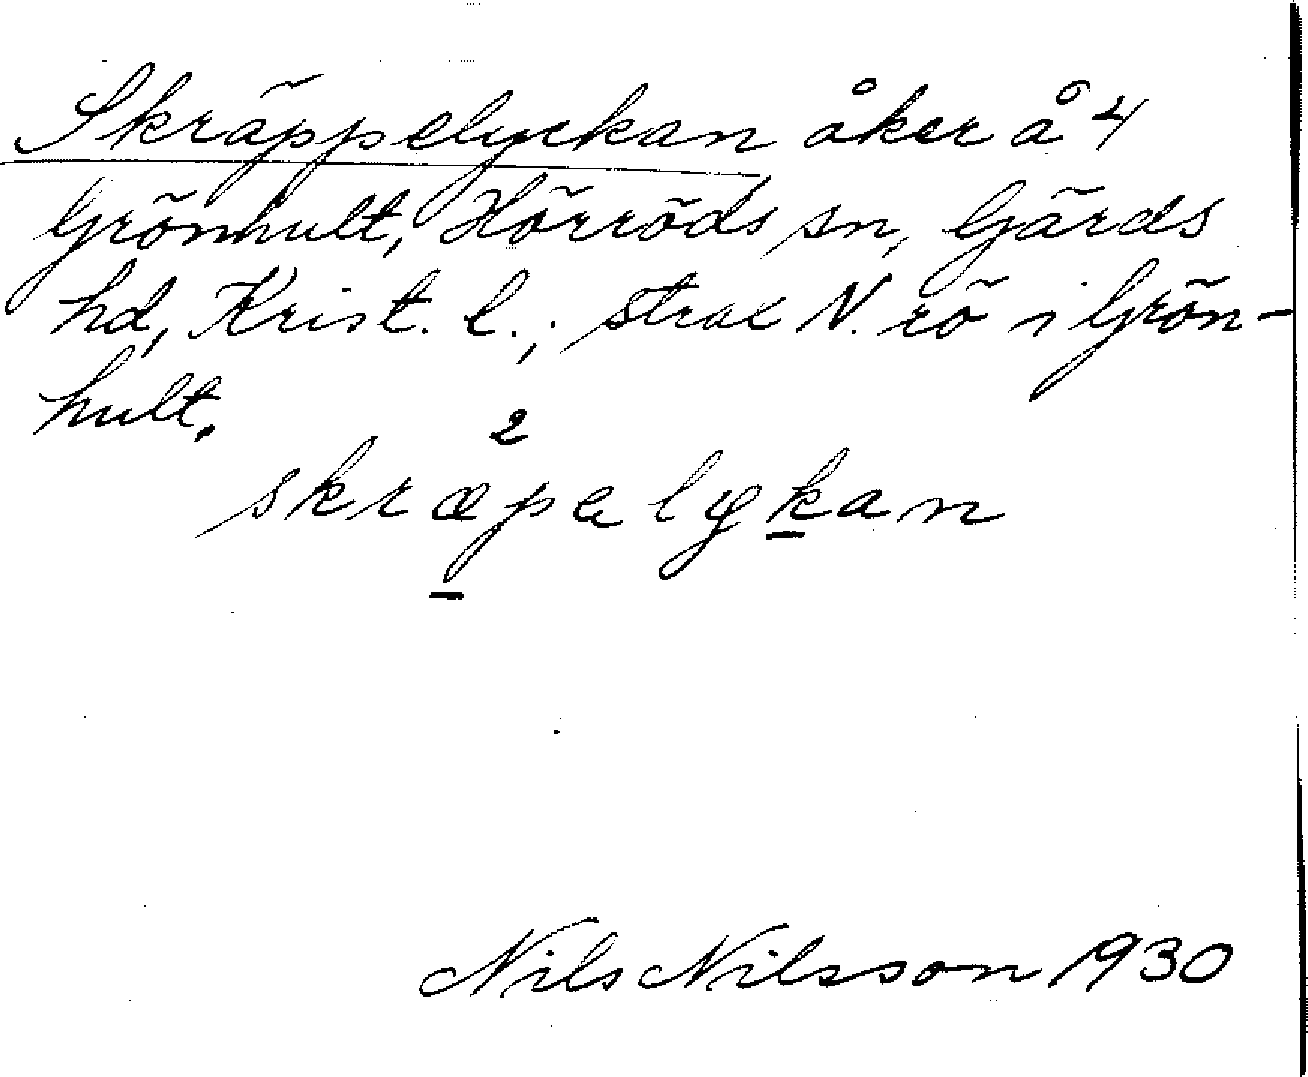 Skräppelyckan åker å 4
Grönhult, Hörröds sn, Gärds
hd, Krist. l., strax N. rö i Grön-
hult.
2
skræpelykan
Nils Nilsson 1930